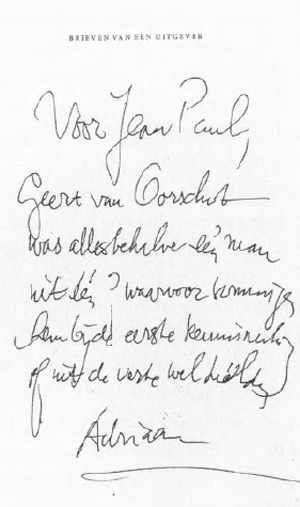 BRIEVEN VAN EEN UITGEVER
Voor Jean Paul,
Geert van Oorschot
was allesbehalve één man
uit één? waarvoor sommigen
hem bij de eerste kennismaking
of uit de verte wel hielden
Adriaan